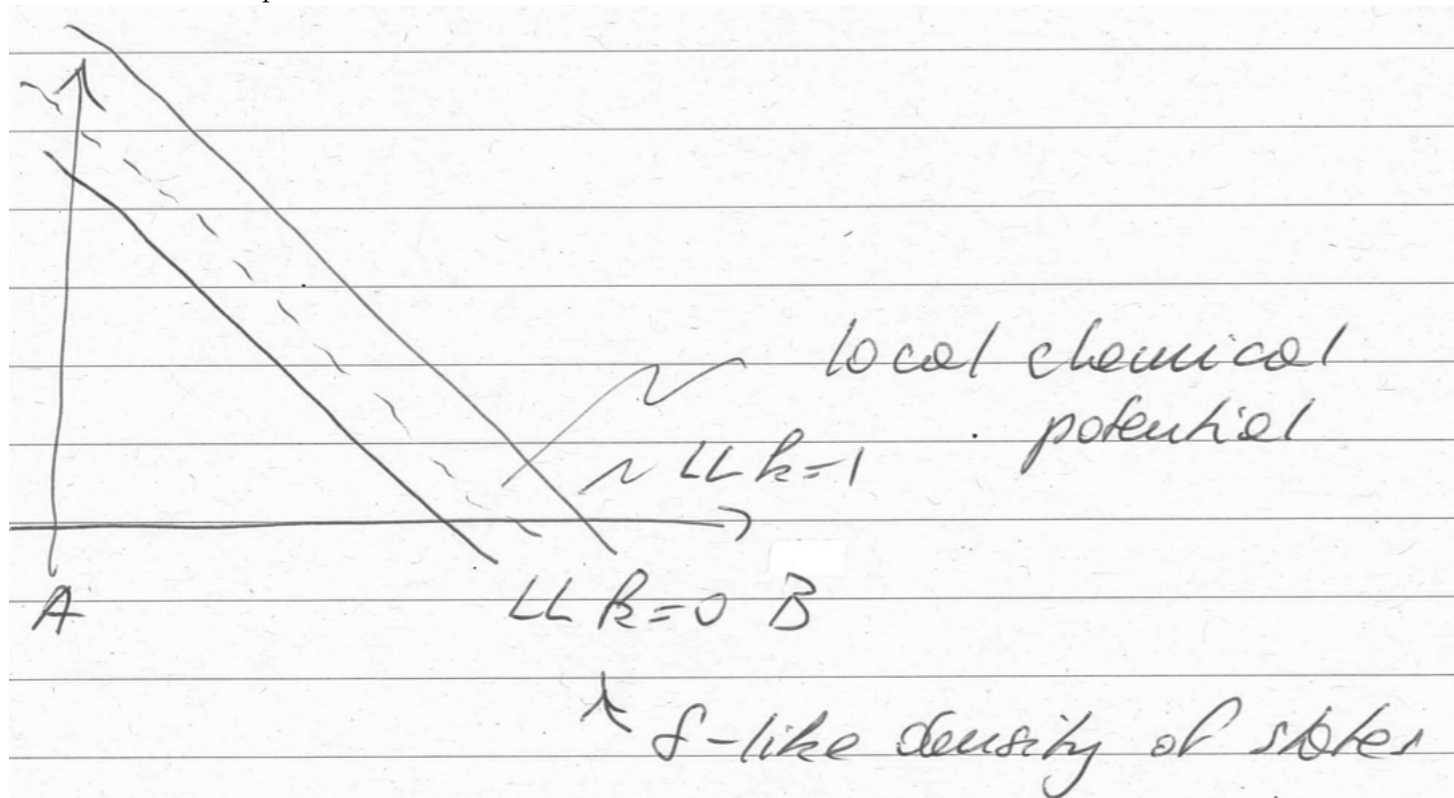 local chemical
potential
LL k=1
A
LL k=0 B
δ-like density of states